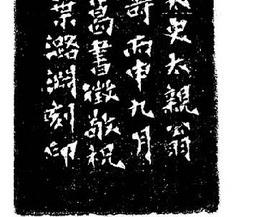 史太親翁
丙申九月
書徵敬祝
葉潞渊刻印